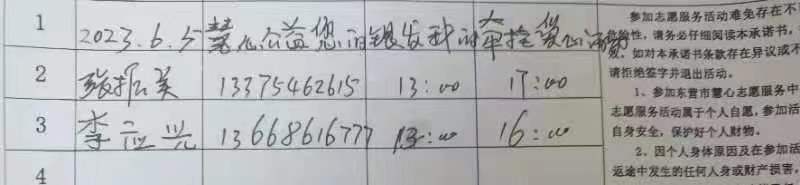 1 2023.6.5 慧心公益您的银发我的牵挂爱心活动
2 张振美 13375462615 13:00 17:00
3 李应兴 13668616777 13:00 16:00
4
参加志愿服务活动难免存在不
险性,请务必仔细阅读本承诺书,
效。如对本承诺书条款存在异议或不
请拒绝签字并退出活动。
1、参加东营市慧心志愿服务中
志愿服务活动属于个人自愿,参加活
自身安全,保护好个人财物。
2、因个人身体原因及在参加活
返途中发生的任何人身或财产损害,